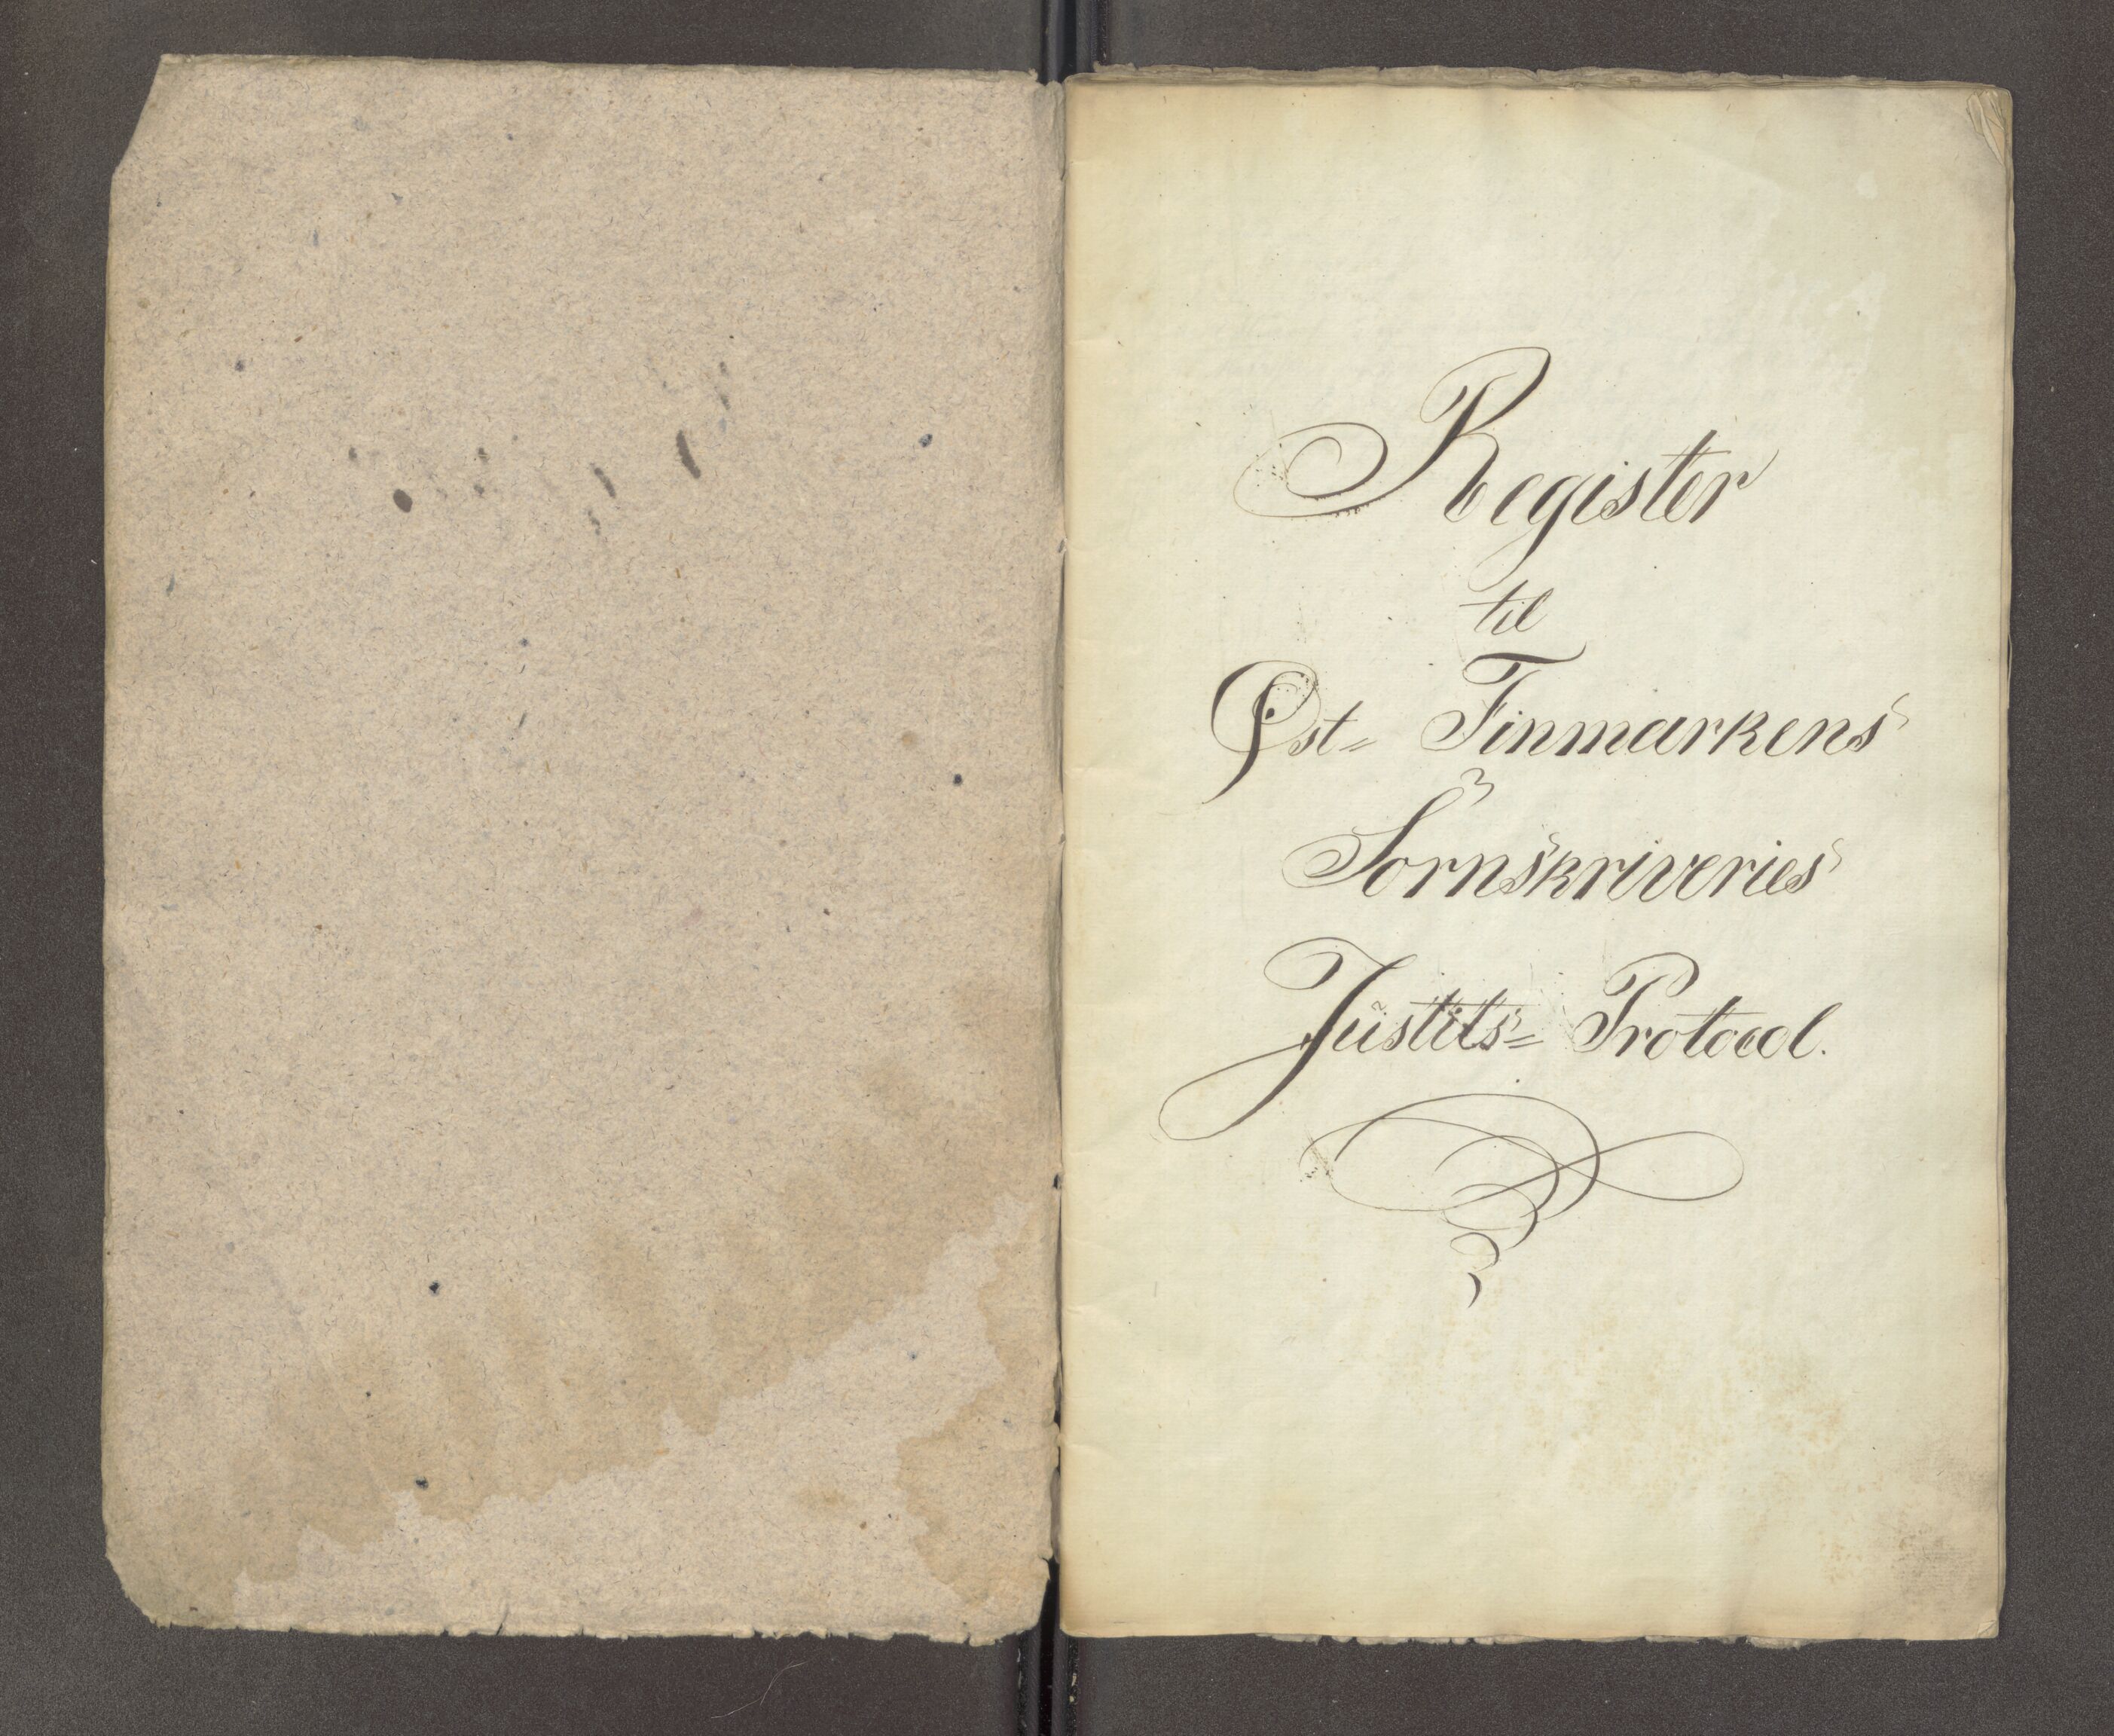 Register
til
Øst= Finmarkens
Sornskriveries
Justits= Protocol.